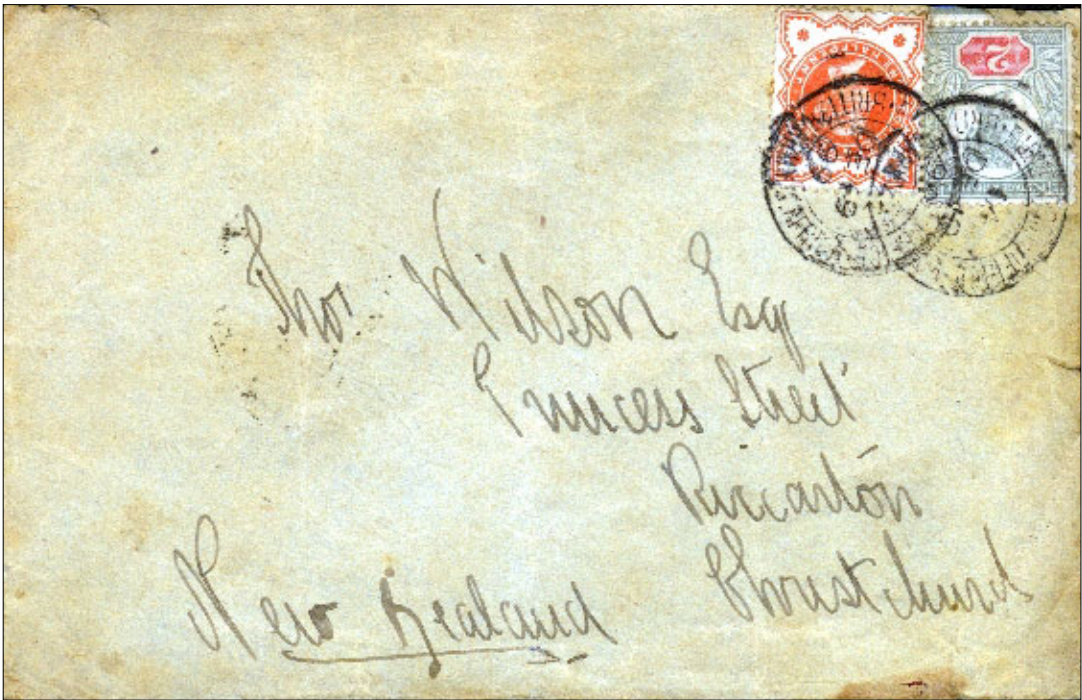 Thos Wilson Esq
Princess Street
Riccarton
Christchurch
New Zealand
HALFPENNY
2